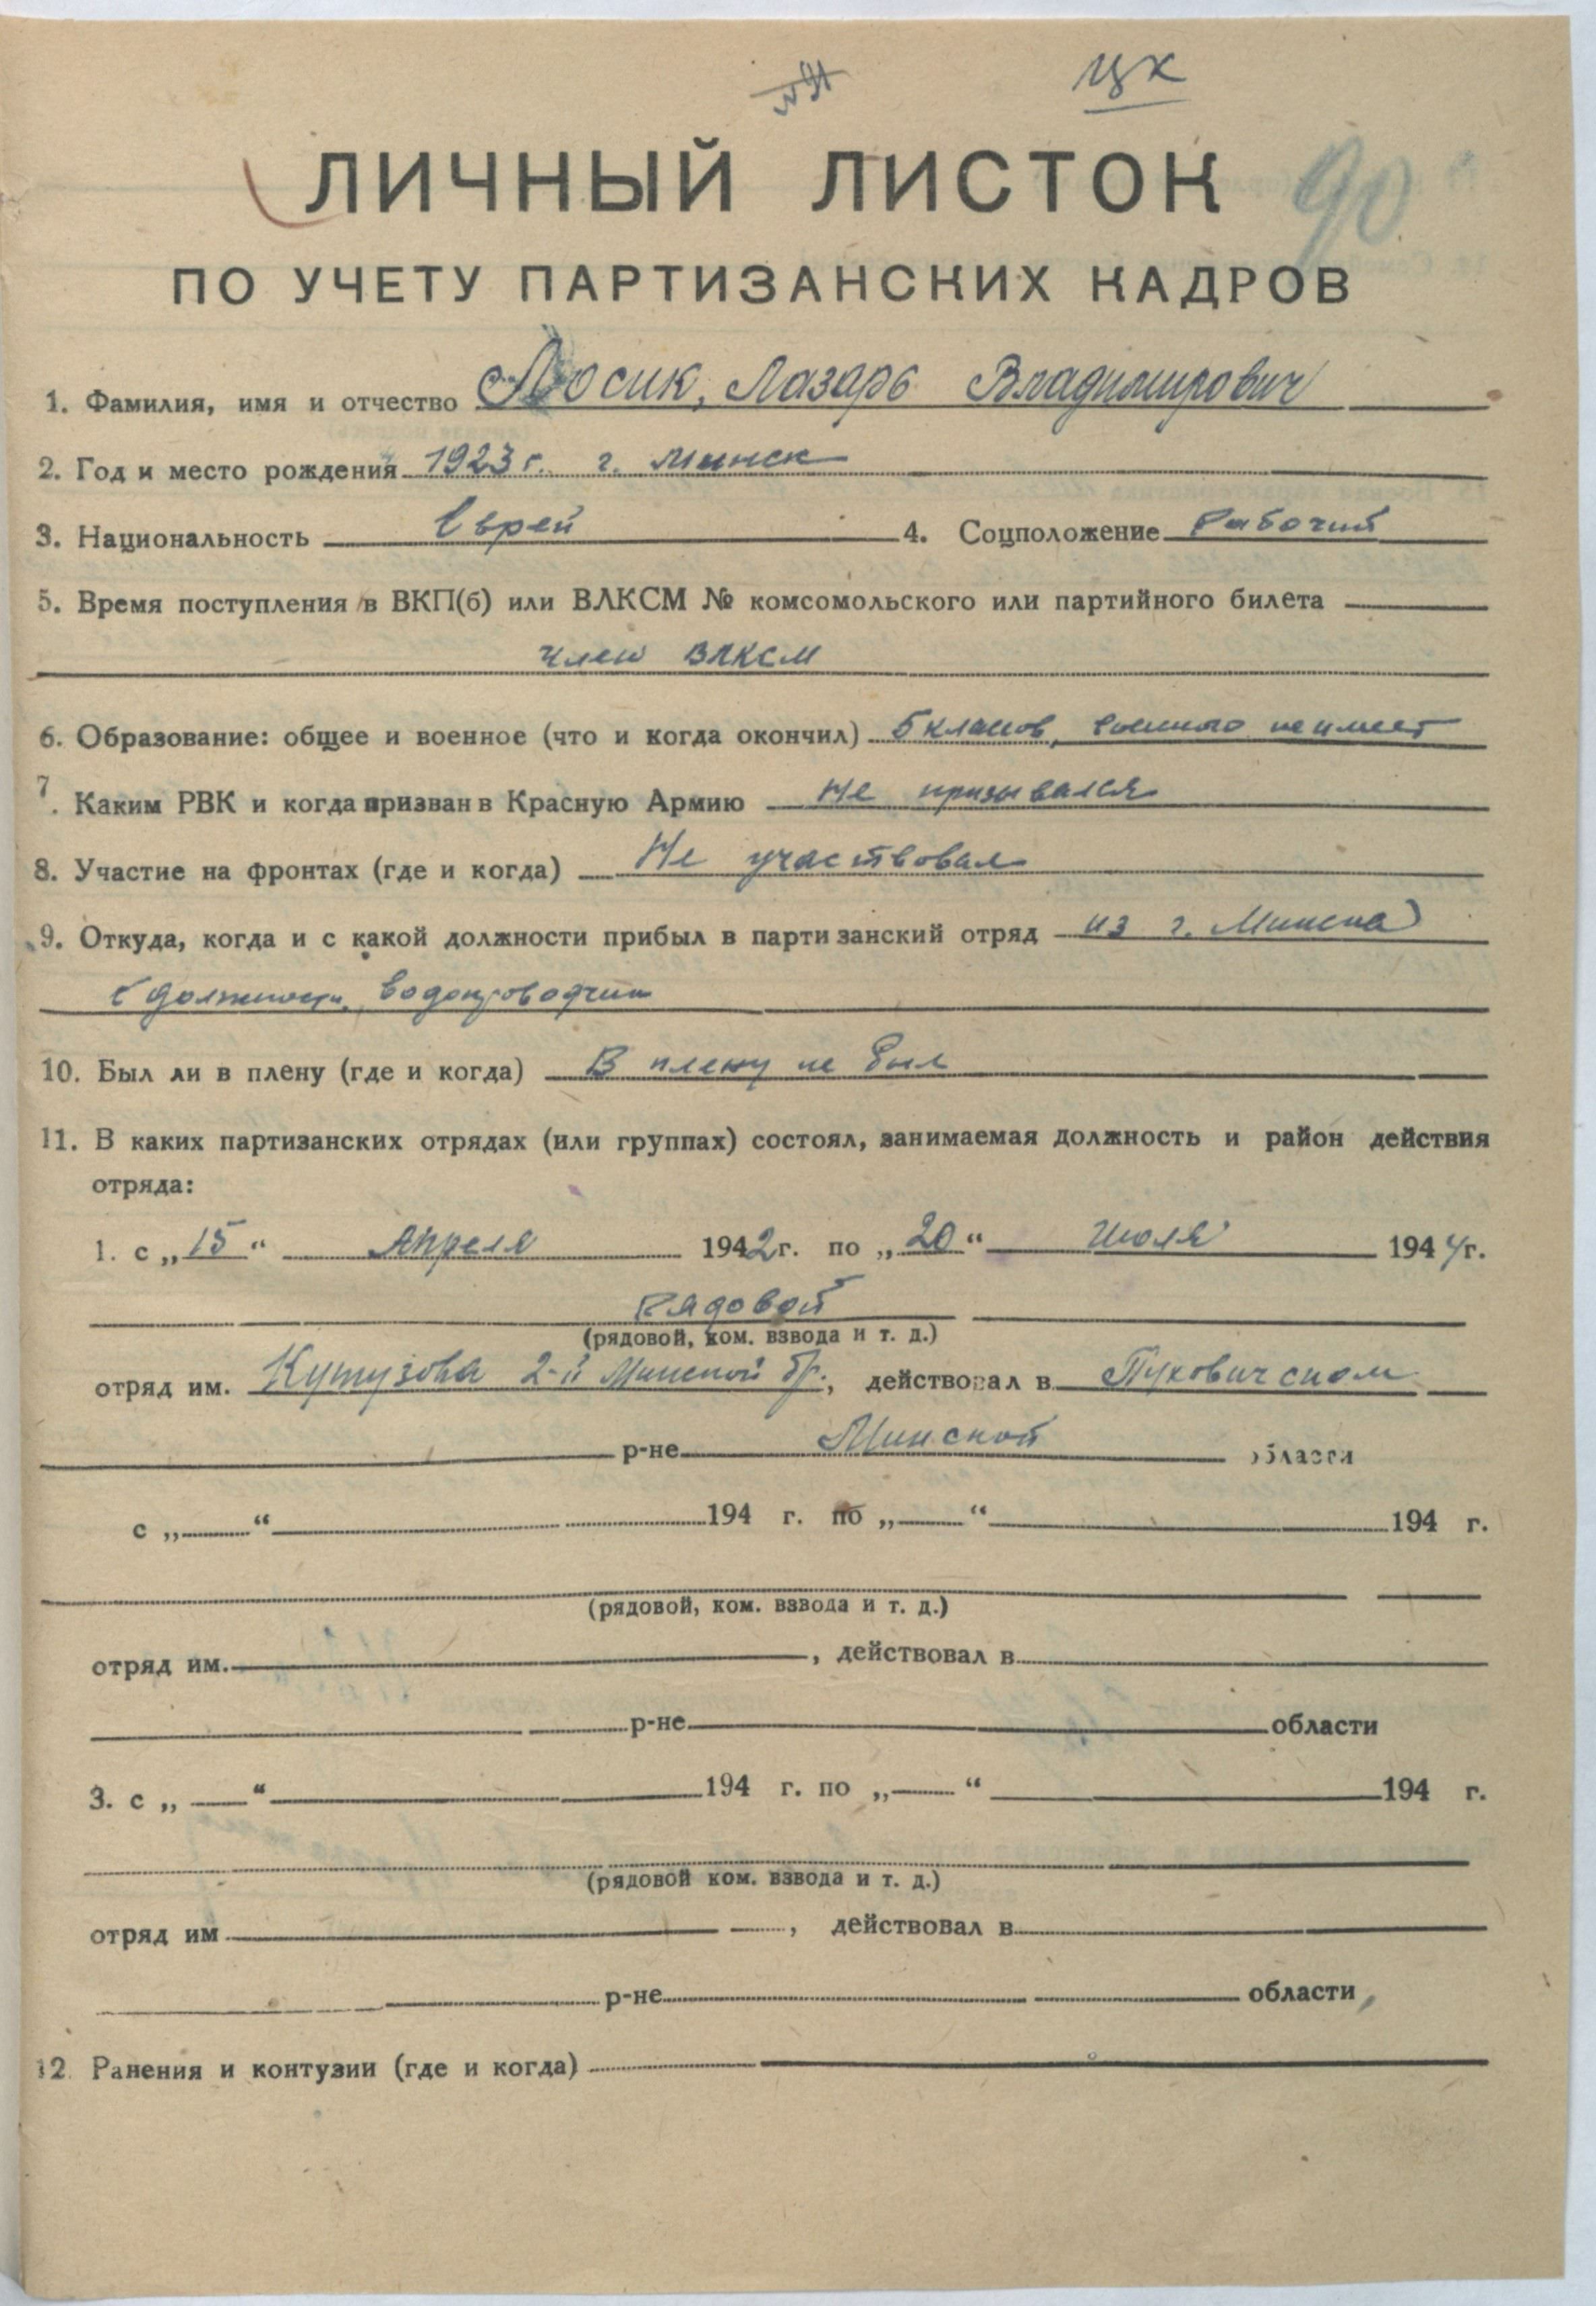 ЦК
ЛИЧНЫЙ ЛИСТОК 90
ПО УЧЕТУ ПАРТИЗАНСКИХ КАДРОВ
1. Фамилия, имя и отчество Лосик, Лазарь Владимирович
2. Год и место рождения 1923 г. г. Минск
3. Национальность Еврей 4. Соцположение Рабочий
5. Время поступления в ВКП(б) или ВЛКСМ № комсомольского или партийного билета
Член ВЛКСМ
6. Образование: общее и военное (что и когда окончил) 5 классов, военного не имеет
7. Каким РВК и когда призван в Красную Армию Не призывался
8. Участие на фронтах (где и когда) Не участвовал
9. Откуда, когда и с какой должности прибыл в партизанский отряд из г. Минска
с должности водопроводчик
10. Был ли в плену (где и когда) В плену не был
11. В каких партизанских отрядах (или группах) состоял, занимаемая должность и район действия
отряда:
1. с „15“ Апреля 1942 г. по „20“ Июля 1944 г.
Рядовой
(рядовой, ком. взвода и т. д.)
отряд им. Кутузова 2-й Минской бр., действовал в Пуховичском
р-не Минской области
с „ “ 194 г. по „ “ 194 г.
(рядовой, ком. взвода и т. д.)
отряд им. , действовал в
р-не области
3. с „ “ 194 г. по „ “ 194 г.
(рядовой ком. взвода и т. д.)
отряд им , действовал в
р-не области
12. Ранения и контузии (где и когда)